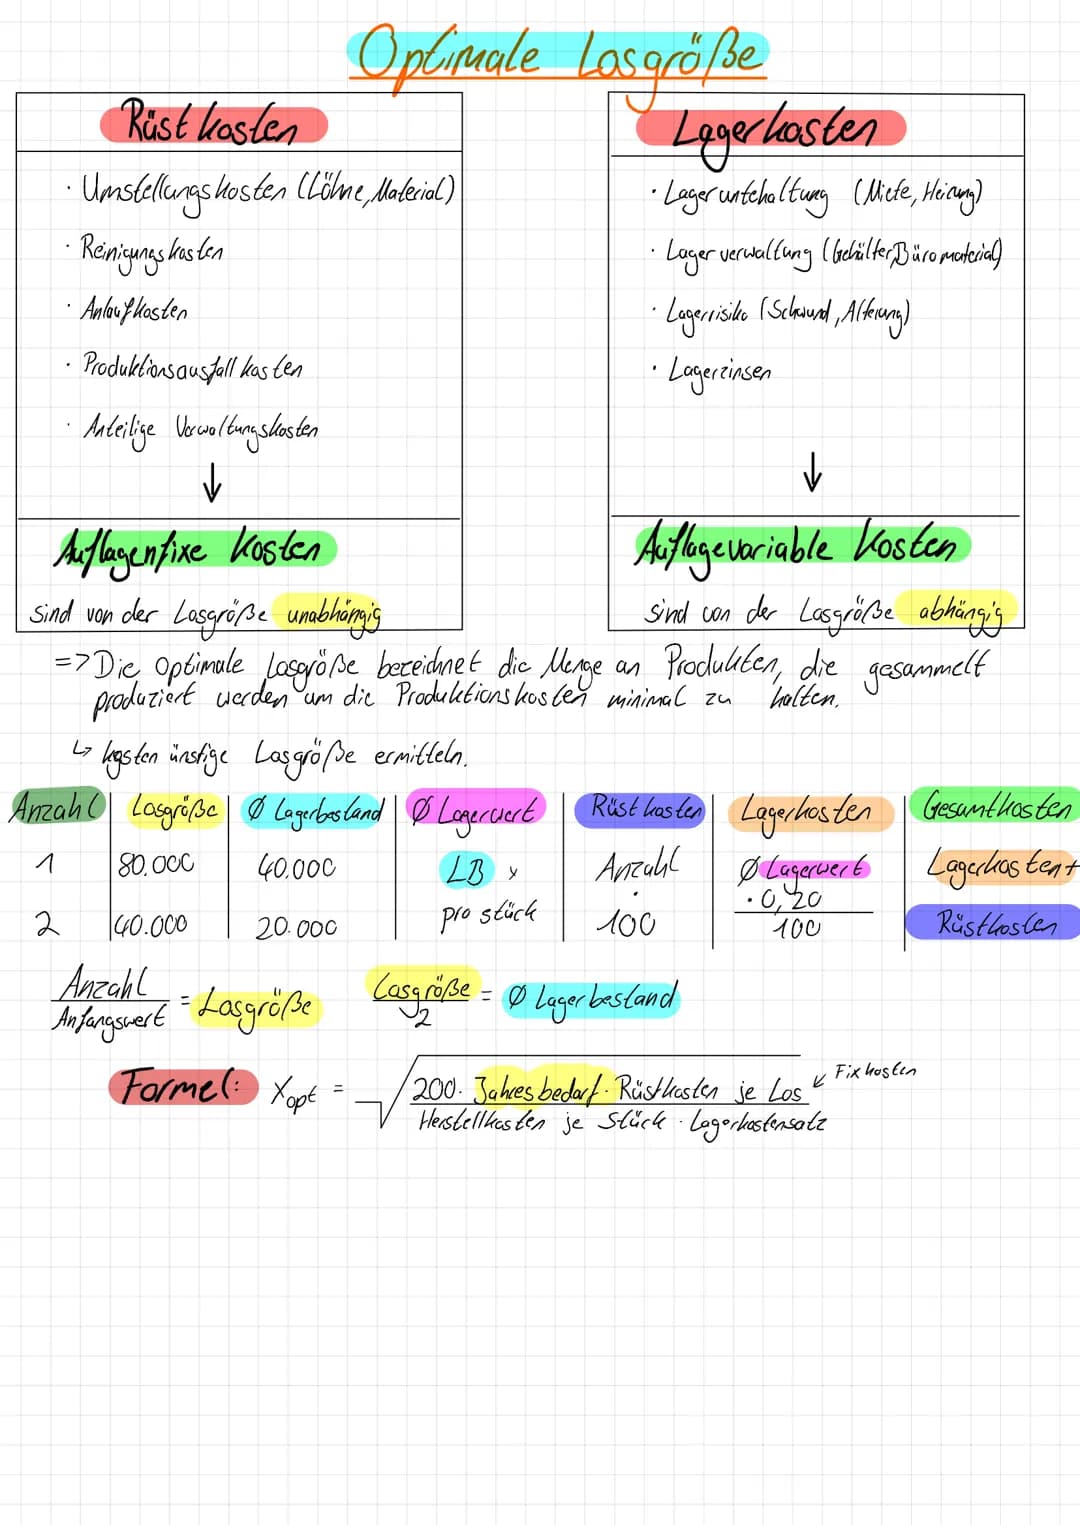 Optimale Losgröße
Rüstkosten
· Umstellungskosten (Löhne, Material)
· Reinigungskosten
· Anlaufkosten
· Produktionsausfallkosten
· Anteilige Verwaltungskosten
↓
Auflagenfixe Kosten
sind von der Losgröße unabhängig
Lagerkosten
· Lageruntehaltung (Miete, Heizung)
· Lagerverwaltung (Gehälter, Büromaterial)
· Lagerrisiko (Schwund, Alterung)
· Lagerzinsen
↓
Auflagevariable Kosten
sind von der Losgröße abhängig
=> Die Optimale Losgröße bezeichnet die Menge an Produkten, die gesammelt
produziert werden um die Produktionskosten minimal zu halten.
↳ kosten ünstige Losgröße ermitteln.
Anzahl | Losgröße | Ø Lagerbestand | Ø Lagerwert | Rüstkosten | Lagerkosten | Gesamtkosten
1 | 80.000 | 40.000 | LB x | Anzahl | Ø Lagerwert | Lagerkosten +
2 | 40.000 | 20.000 | pro stück | · 100 | · 0,20 / 100 | Rüstkosten
Anzahl / Anfangswert = Losgröße Losgröße / 2 = Ø Lagerbestand
Formel: Xopt = √ 200 · Jahresbedarf · Rüstkosten je Los ↙ Fixkosten
Herstellkosten je Stück · Lagerkostensatz